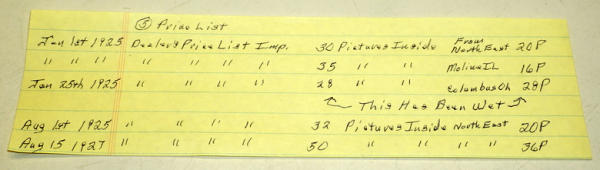 ⑤ Price List
Jan 1st 1925 Dealers Price List Imp. 30 Pictures Inside From North East 20P
" " " " " " " 35 " " Moline IL 16P
Jan 25th 1925 " " " " 28 " " Columbus Oh 28P
This Has Been Wet
Aug 1st 1925 " " " " 32 Pictures Inside North East 20P
Aug 15 1927 " " " " 50 " " " " 36P